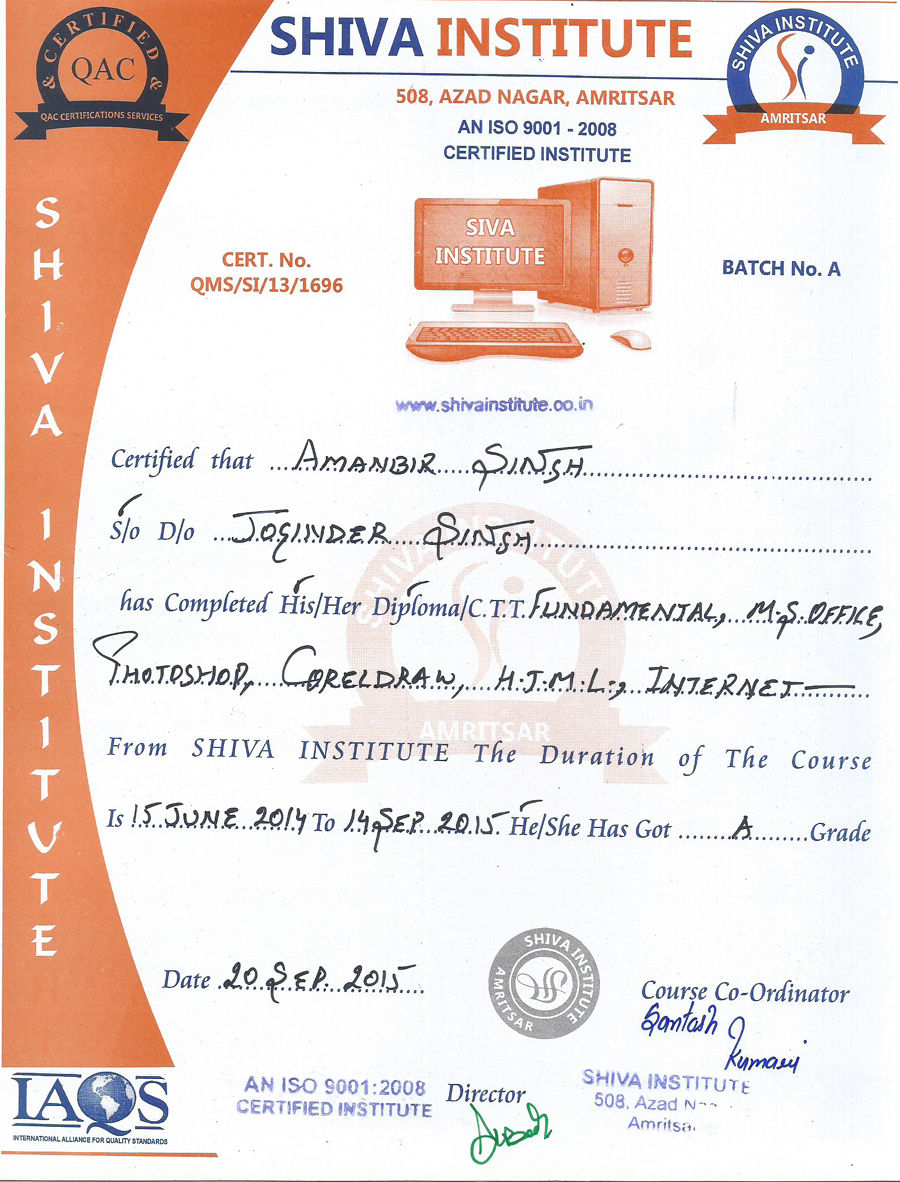 CERTIFIED
& &
QAC
QAC CERTIFICATIONS SERVICES
SHIVA INSTITUTE
SHIVA INSTITUTE
AMRITSAR
508, AZAD NAGAR, AMRITSAR
AN ISO 9001 - 2008
CERTIFIED INSTITUTE
SHIVA INSTITUTE
SIVA
INSTITUTE
CERT. No.
QMS/SI/13/1696
BATCH No. A
www.shivainstitute.co.in
Certified that ...AMANBIR SINGH
S/o D/o ...JOGINDER SINGH
has Completed His/Her Diploma/C.T.T. FUNDAMENTAL, M.S.OFFICE,
PHOTOSHOP, CORELDRAW, H.T.M.L., INTERNET —
SHIVA INSTITUTE
AMRITSAR
From SHIVA INSTITUTE The Duration of The Course
Is 15 JUNE 2014 To 14 SEP. 2015. He/She Has Got ........A........Grade
Date .20 SEP. 2015
SHIVA INSTITUTE
AMRITSAR
Course Co-Ordinator
Santash
Kumari
IAQS
INTERNATIONAL ALLIANCE FOR QUALITY STANDARDS
AN ISO 9001:2008
CERTIFIED INSTITUTE
Director
SHIVA INSTITUTE
508, Azad
Amritsa